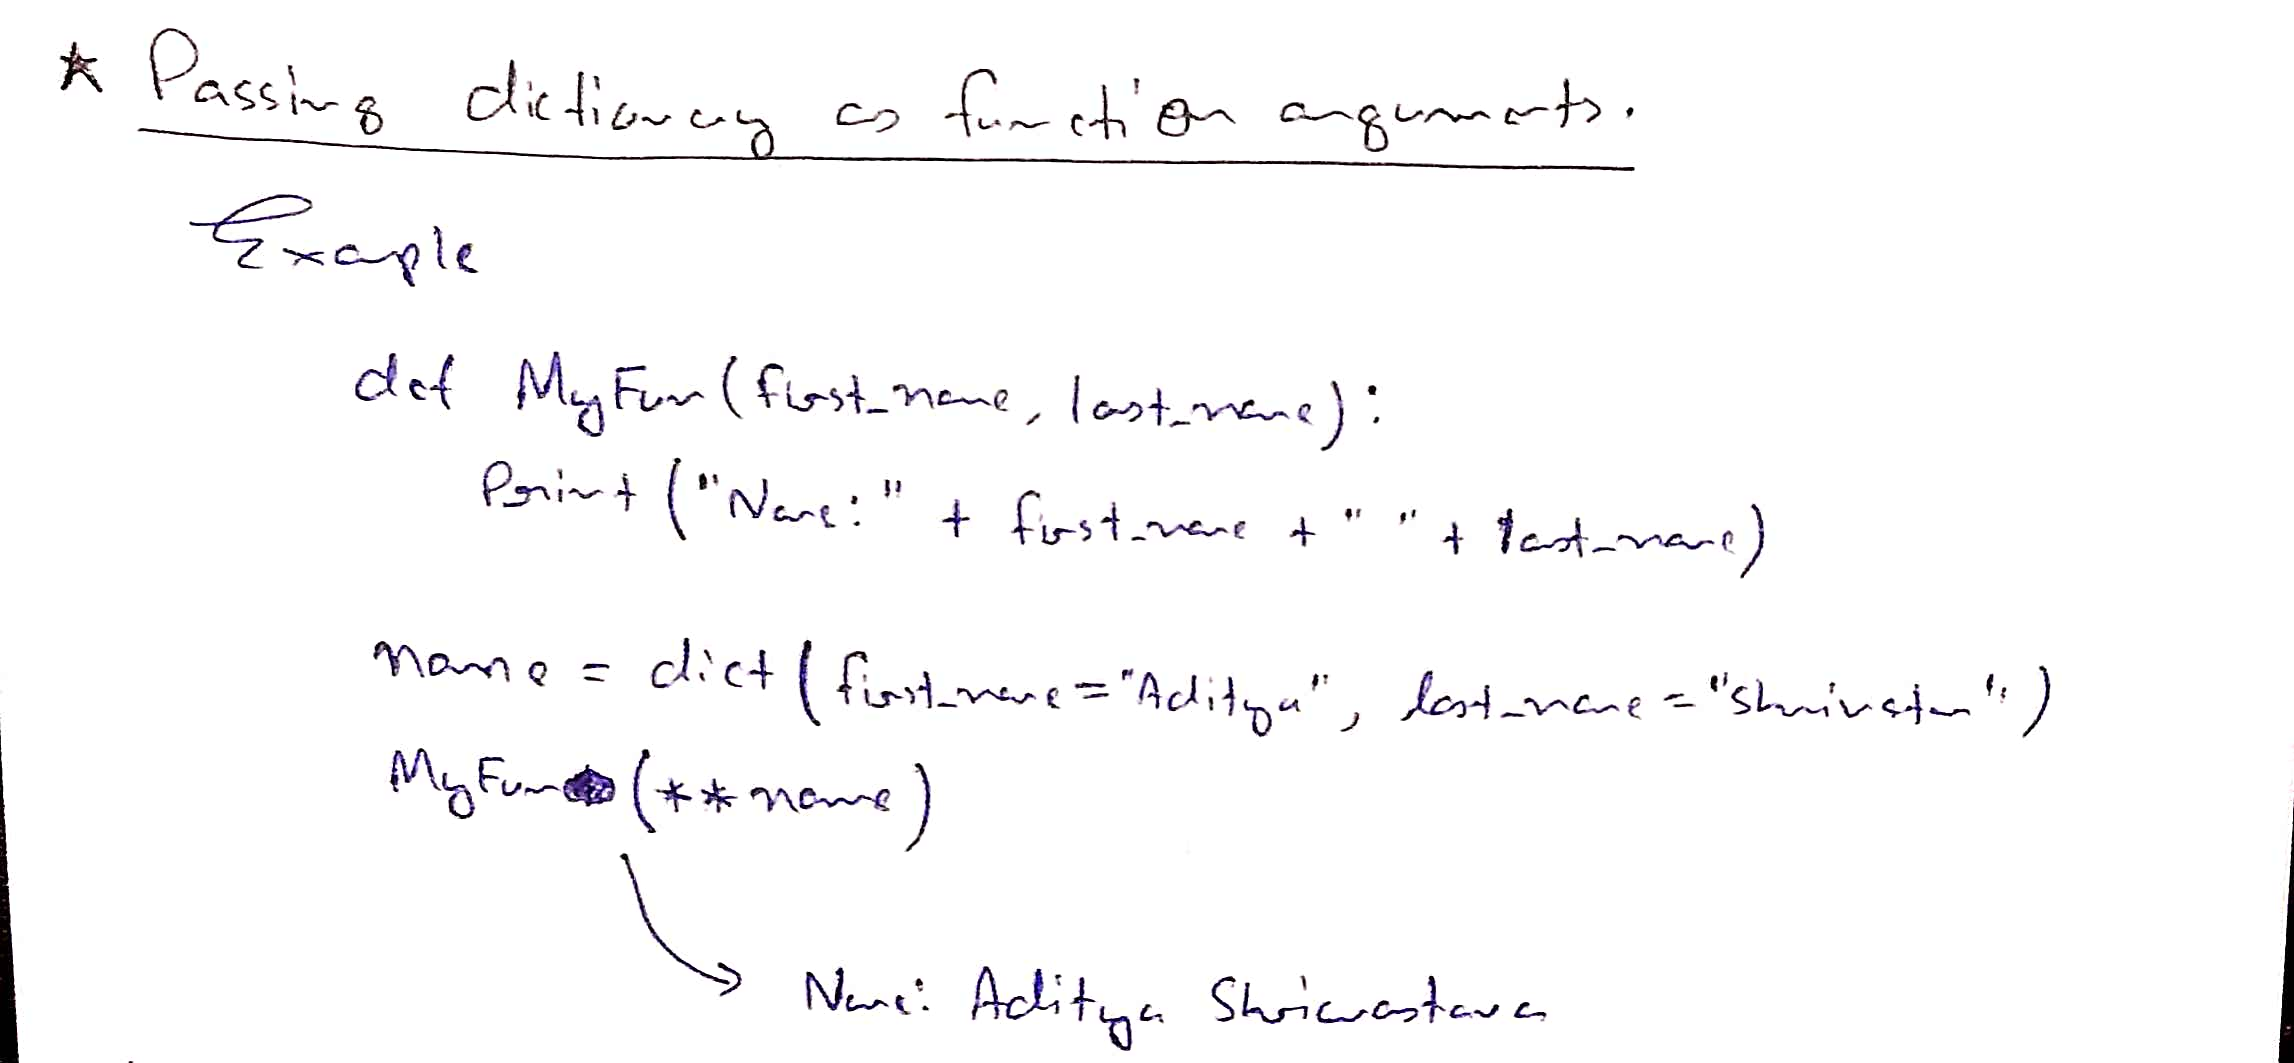 * Passing dictionary as function arguments.
Example
def MyFun(first_name, last_name):
Print ("Name:" + first_name + " " + last_name)
name = dict(first_name="Aditya", last_name=" ")
MyFun(**name)
Name: Aditya Shrivastava